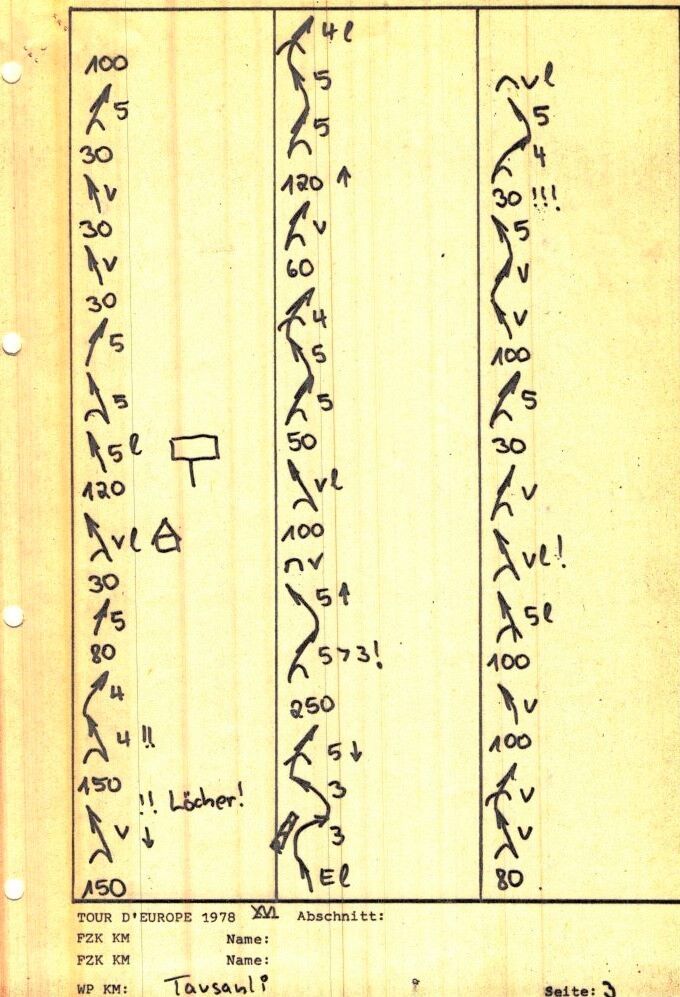 100
5
30
v
30
v
30
5
5
5 l
120
v l
30
5
80
4
4 !!
150
!! Löcher!
v ↓
150
4 l
5
5
120 ↑
v
60
4
5
5
50
v l
100
v
5 ↑
5 > 3!
250
5 ↓
3
3
El
v l
5
4
30 !!!
5
v
v
100
5
30
v
v l !
5 l
100
v
100
v
v
80
TOUR D'EUROPE 1978 XVI Abschnitt:
FZK KM Name:
FZK KM Name:
WP KM: Tavsanli Seite: 3